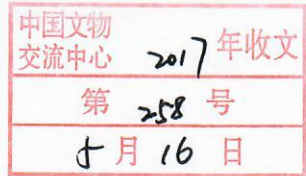 中国文物
交流中心 2017 年收文
第 258 号
5 月 16 日